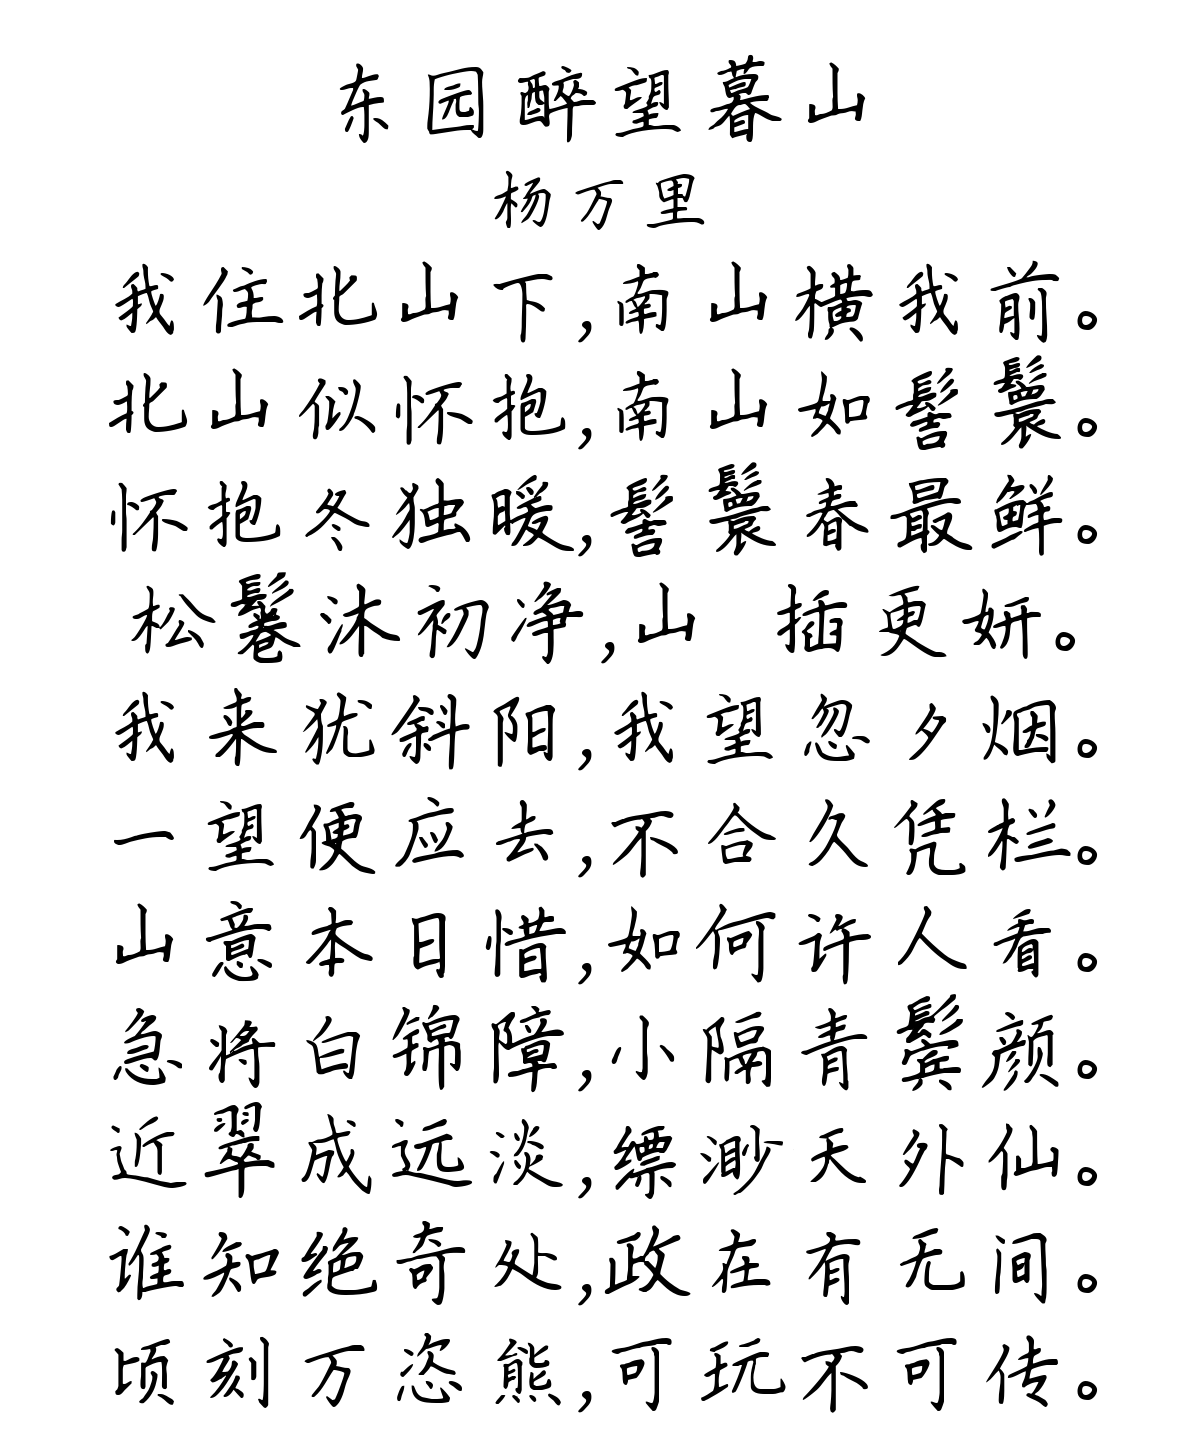 东园醉望暮山
杨万里
我住北山下,南山横我前。
北山似怀抱,南山如髻鬟。
怀抱冬独暖,髻鬟春最鲜。
松鬈沐初净,山 插更妍。
我来犹斜阳,我望忽夕烟。
一望便应去,不合久凭栏。
山意本日惜,如何许人看。
急将白锦障,小隔青鬓颜。
近翠成远淡,缥渺天外仙。
谁知绝奇处,政在有无间。
顷刻万恣熊,可玩不可传。